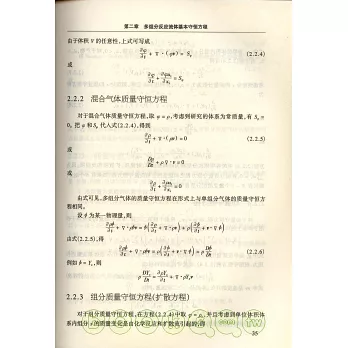 第二章 多组分反应流体基本守恒方程
由于体积 V 的任意性,上式可写成
∂φ/∂t + ∇·(φv) = Sφ (2.2.4)
或
∂φ/∂t + ∂φuᵢ/∂xᵢ = Sφ
2.2.2 混合气体质量守恒方程
对于混合气体质量守恒方程,取 φ = ρ,考虑到研究的体系为常质量,有 Sφ =
0,把 φ 和 Sφ 代入式(2.2.4),得到
∂ρ/∂t + ∇·(ρv) = 0 (2.2.5)
或
Dρ/Dt + ρ∇·v = 0
或
∂ρ/∂t + ∂ρuᵢ/∂xᵢ = 0
由式可见,多组分气体的质量守恒方程在形式上与单组分气体的质量守恒方
程相同。
设 ϕ 为某一物理量,则
由式(2.2.5),得
(2.2.6)
例如 ϕ = Yₛ,则
2.2.3 组分质量守恒方程(扩散方程)
对于组分质量守恒方程,在方程(2.2.4)中取 φ = ρₛ,并且考虑到单位体积体
系内组分 s 的质量变化是由化学反应和扩散共同引起的,得
35